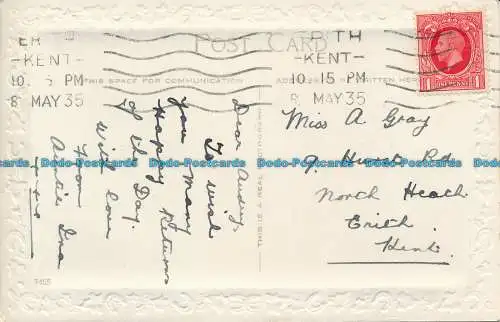 ER TH
-KENT- -KENT-
10. 5 PM 10. 15 - PM
8 MAY 35 8 MAY 35
POST CARD
THIS SPACE FOR COMMUNICATION
Dear Audrey,
To wish
You many
Happy Returns
of the Day.
With love
From
Auntie Ina
x x x o
THIS IS A REAL PHOTOGRAPH
Miss A Gray
9. Hurst Rd
North Heath
Erith
Kent.
1 1
Postcards-Dodo Postcards-Dodo Postcards-Dodo Postcards-Dodo